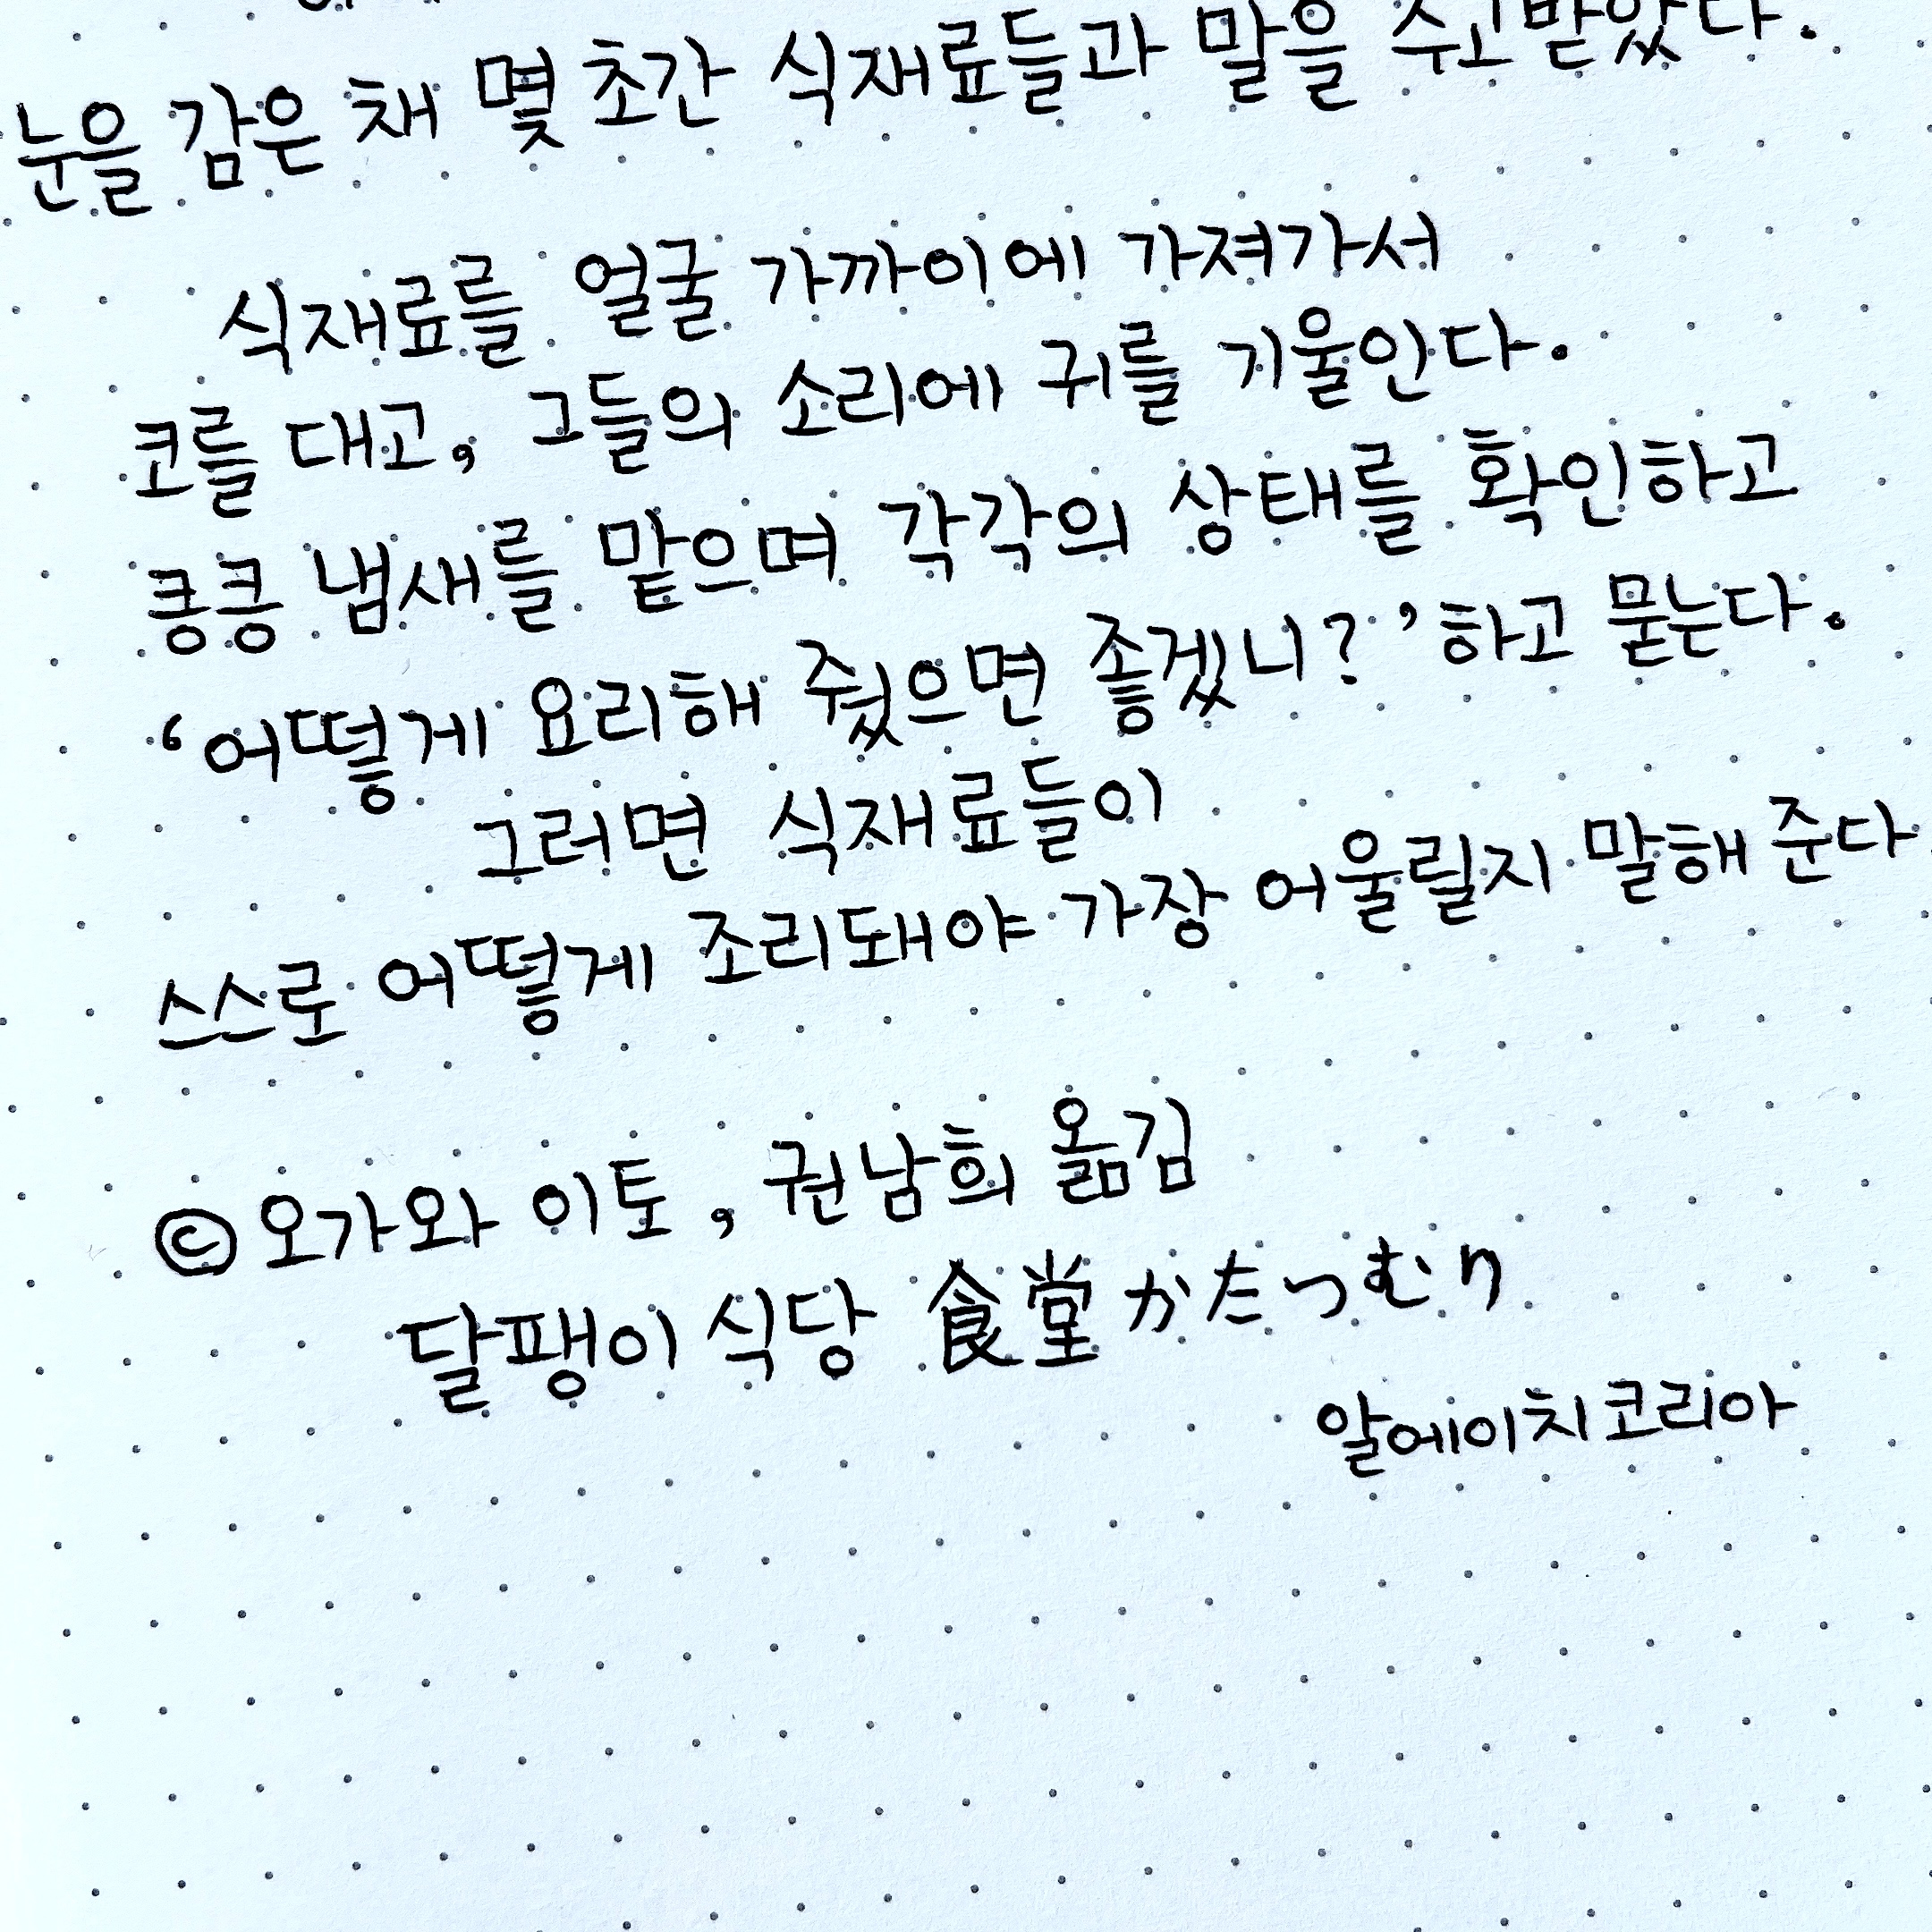 눈을 감은 채 몇 초간 식재료들과 말을 주고받았다.
식재료를 얼굴 가까이에 가져가서
코를 대고, 그들의 소리에 귀를 기울인다.
킁킁 냄새를 맡으며 각각의 상태를 확인하고
‘어떻게 요리해 줬으면 좋겠니?’ 하고 묻는다.
그러면 식재료들이
스스로 어떻게 조리돼야 가장 어울릴지 말해 준다.
© 오가와 이토, 권남희 옮김
달팽이 식당 食堂かたつむり
알에이치코리아